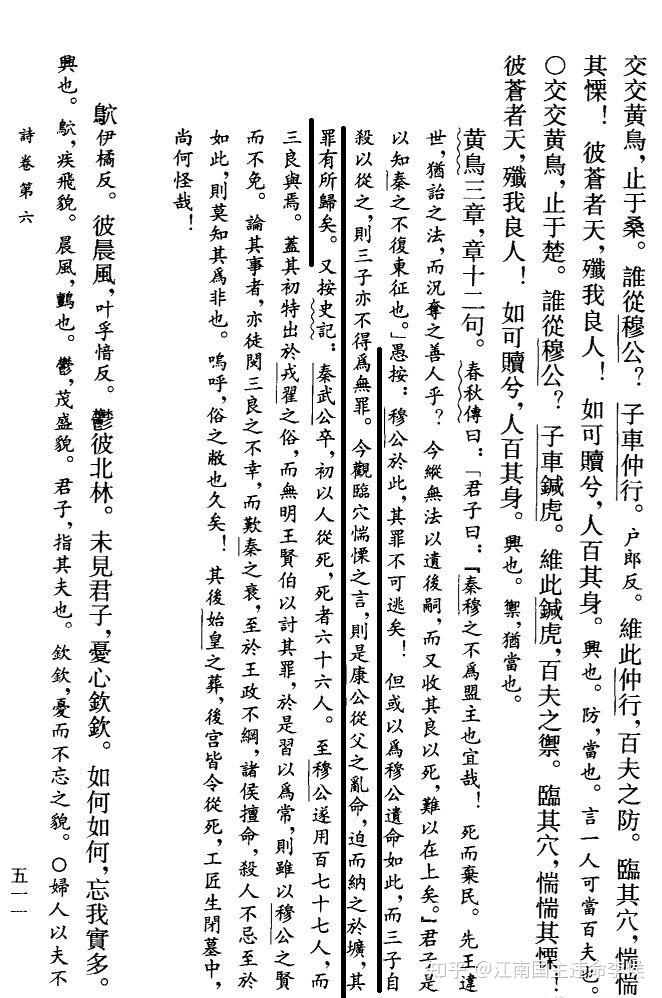 交交黄鳥，止于桑。誰從穆公？子車仲行。户郎反。維此仲行，百夫之防。臨其穴，惴惴
其慄！彼蒼者天，殲我良人！如可贖兮，人百其身。興也。防，當也。言一人可當百夫也。
○交交黄鳥，止于楚。誰從穆公？子車鍼虎。維此鍼虎，百夫之禦。臨其穴，惴惴其慄！
彼蒼者天，殲我良人！如可贖兮，人百其身。興也。禦，猶當也。
黄鳥三章，章十二句。春秋傳曰：「君子曰：『秦穆之不爲盟主也宜哉！死而棄民。先王違
世，猶詒之法，而況奪之善人乎？今縱無法以遺後嗣，而又收其良以死，難以在上矣。』君子是
以知秦之不復東征也。」愚按：穆公於此，其罪不可逃矣！但或以爲穆公遺命如此，而三子自
殺以從之，則三子亦不得爲無罪。今觀臨穴惴慄之言，則是康公從父之亂命，迫而納之於壙，其
罪有所歸矣。又按史記：秦武公卒，初以人從死，死者六十六人。至穆公遂用百七十七人，而
三良與焉。蓋其初特出於戎翟之俗，而無明王賢伯以討其罪，於是習以爲常，則雖以穆公之賢
而不免。論其事者，亦徒閔三良之不幸，而歎秦之衰，至於王政不綱，諸侯擅命，殺人不忌至於
如此，則莫知其爲非也。嗚呼，俗之敝也久矣！其後始皇之葬，後宫皆令從死，工匠生閉墓中，
尚何怪哉！
鴥伊橘反。彼晨風，叶孚愔反。鬱彼北林。未見君子，憂心欽欽。如何如何，忘我實多。
興也。鴥，疾飛貌。晨風，鸇也。鬱，茂盛貌。君子，指其夫也。欽欽，憂而不忘之貌。○婦人以夫不
詩卷第六
五一
知乎 @江南国主違命李侯